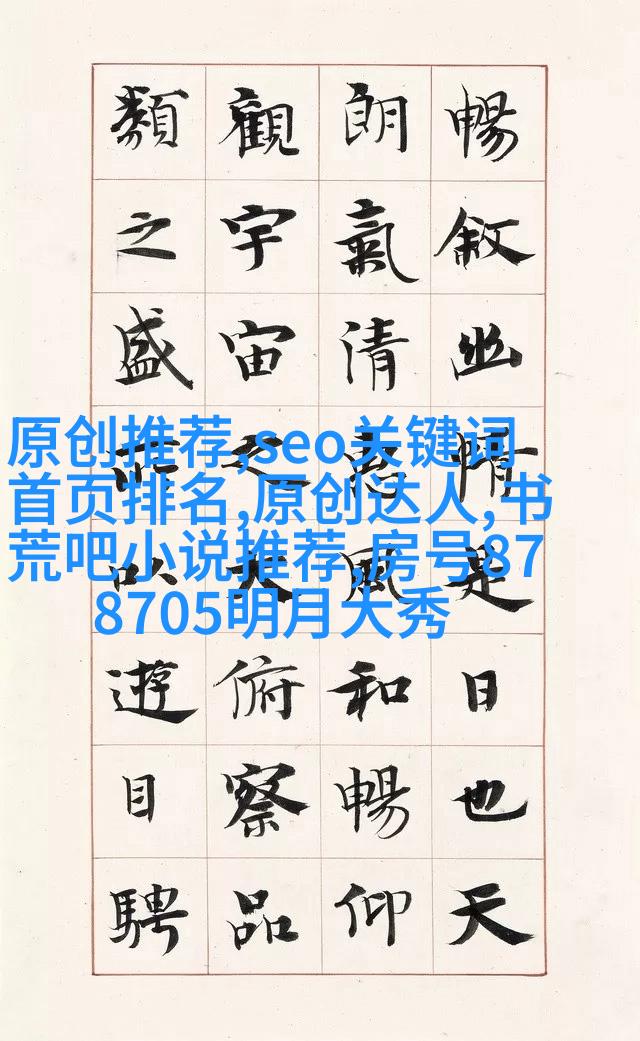 暢敘幽情是日也天
朗氣清惠風和暢仰
觀宇宙之大俯察品
類之盛所以遊目騁
原创推荐,seo关键词
首页排名,原创达人,书
荒吧小说推荐,房号87
8705明月大秀